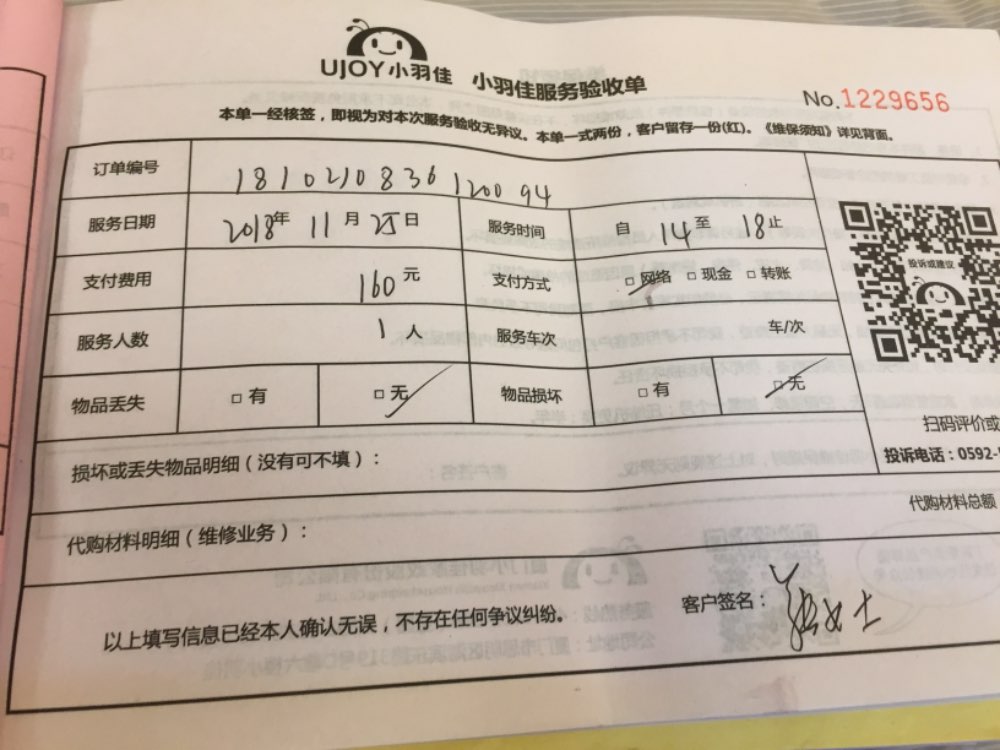 UJOY小羽佳 小羽佳服务验收单
No.1229656
本单一经核签，即视为对本次服务验收无异议。本单一式两份，客户留存一份(红)。《维保须知》详见背面。
订单编号 1810210836120094
服务日期 2018年 11月 25日 服务时间 自 14 至 18 止
投诉或建议
支付费用 160元 支付方式 □网络 □现金 □转账
服务人数 1人 服务车次 车/次
物品丢失 □有 □无 物品损坏 □有 □无
扫码评价或
损坏或丢失物品明细（没有可不填）：
投诉电话：0592-
代购材料总额
代购材料明细（维修业务）：
以上填写信息已经本人确认无误，不存在任何争议纠纷。 客户签名： 女士